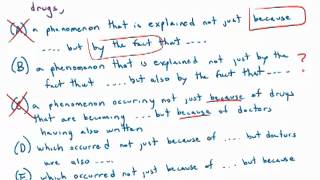 drugs,
(A) a phenomenon that is explained not just because
.... but by the fact that ....
(B) a phenomenon that is explained not just by the
fact that .... but also by the fact that .... ?
(C) a phenomenon occuring not just because of drugs
that are becoming ... but because of doctors
having also written
(D) which occurred not just because of ... but doctors
are also ....
(E) which occurred not just because of ... but because